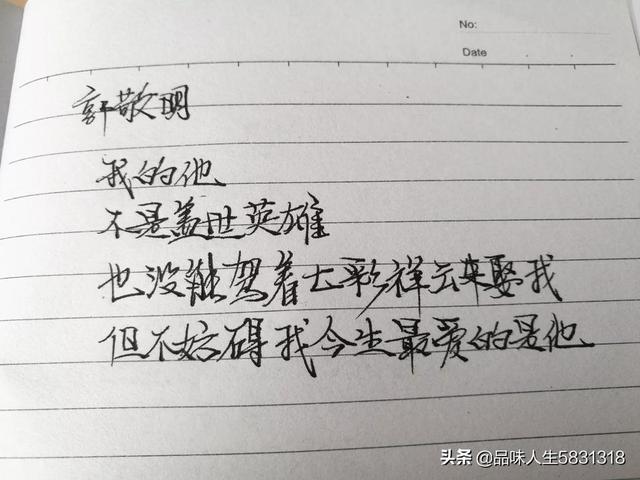 No:
Date
郭敬明
我的他
不是盖世英雄
也没能驾着七彩祥云来娶我
但不妨碍我今生最爱的是他
头条 @品味人生5831318